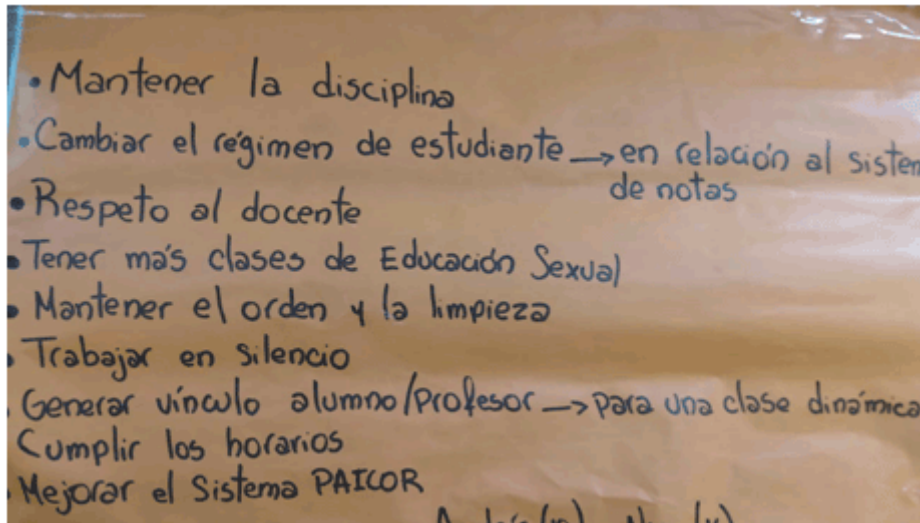 • Mantener la disciplina
• Cambiar el régimen de estudiante → en relación al sistem
de notas
• Respeto al docente
• Tener más clases de Educación Sexual
• Mantener el orden y la limpieza
• Trabajar en silencio
• Generar vínculo alumno/profesor → para una clase dinámica
Cumplir los horarios
• Mejorar el Sistema PAICOR